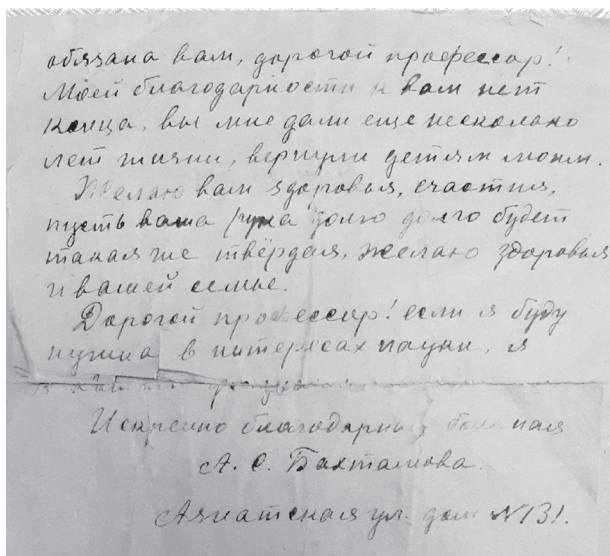 обязана вам, дорогой профессор!
Моей благодарности к вам нет
конца, вы мне дали еще несколько
лет жизни, вернули детям моим.
Желаю вам здоровья, счастия,
пусть ваша рука долго долго будет
такая же твёрдая, желаю здоровья
и вашей семье.
Дорогой профессор! если я буду
нужна в интересах науки, я
Искренно благодарная больная
А. С. Бахтамова.
Азиатская ул. дом №131.